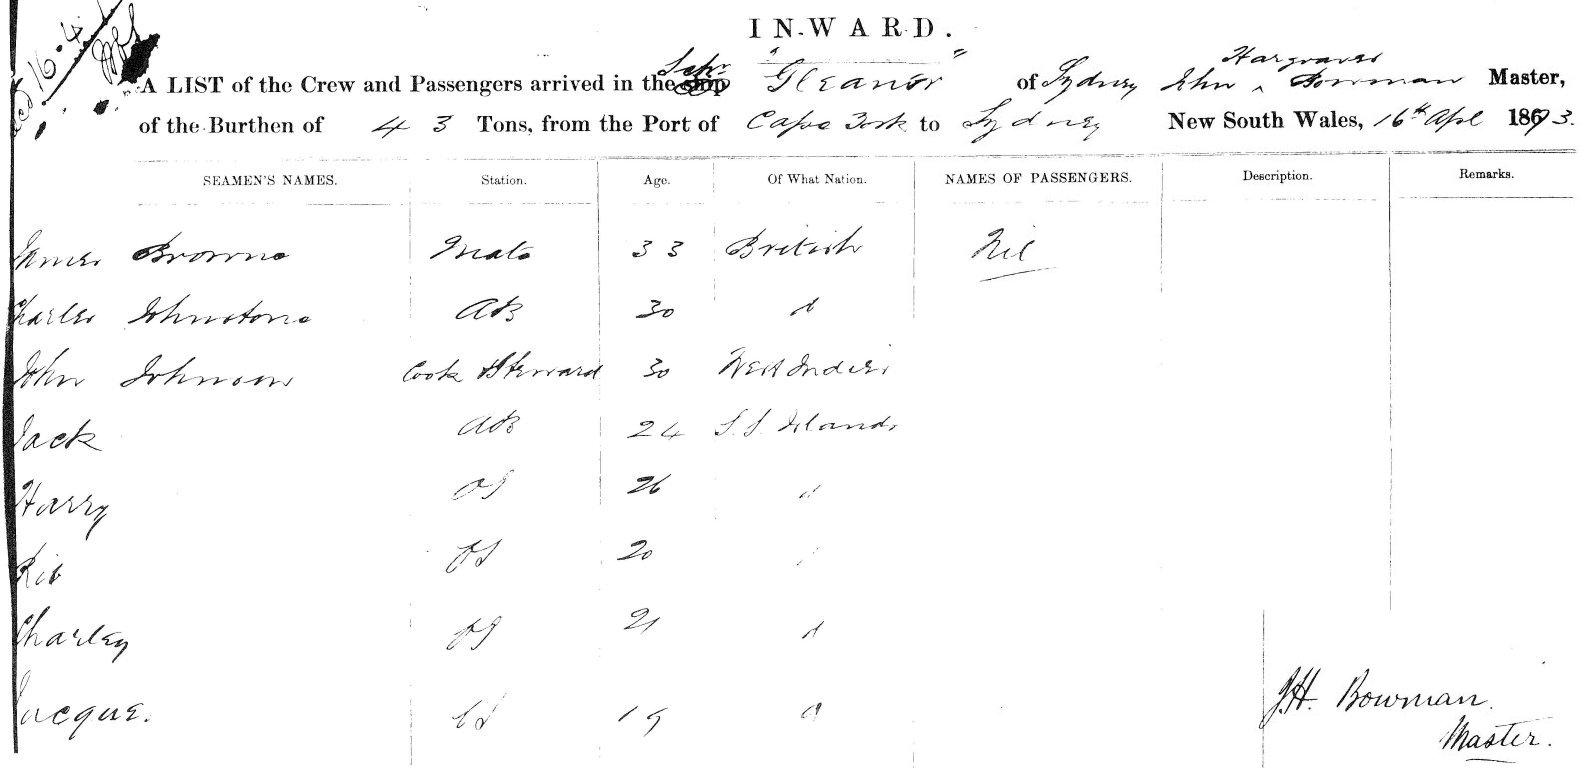 16.4
INWARD.
Hargraves
A LIST of the Crew and Passengers arrived in the ship Schr "Gleaner" of Sydney John ^ Bowman Master,
of the Burthen of 43 Tons, from the Port of Cape York to Sydney New South Wales, 16th Apl 1893.
SEAMEN'S NAMES. Station. Age. Of What Nation. NAMES OF PASSENGERS. Description. Remarks.
James Browne Mate 33 British Nil
Charles Johnstone AB 30 d
John Johnson Cook & Steward 30 West Indies
Jack AB 24 S.S. Islands
Harry OS 26 d
OS 20
Charley OS 21 d
Jacque. OS 19 d
J.H. Bowman.
Master.